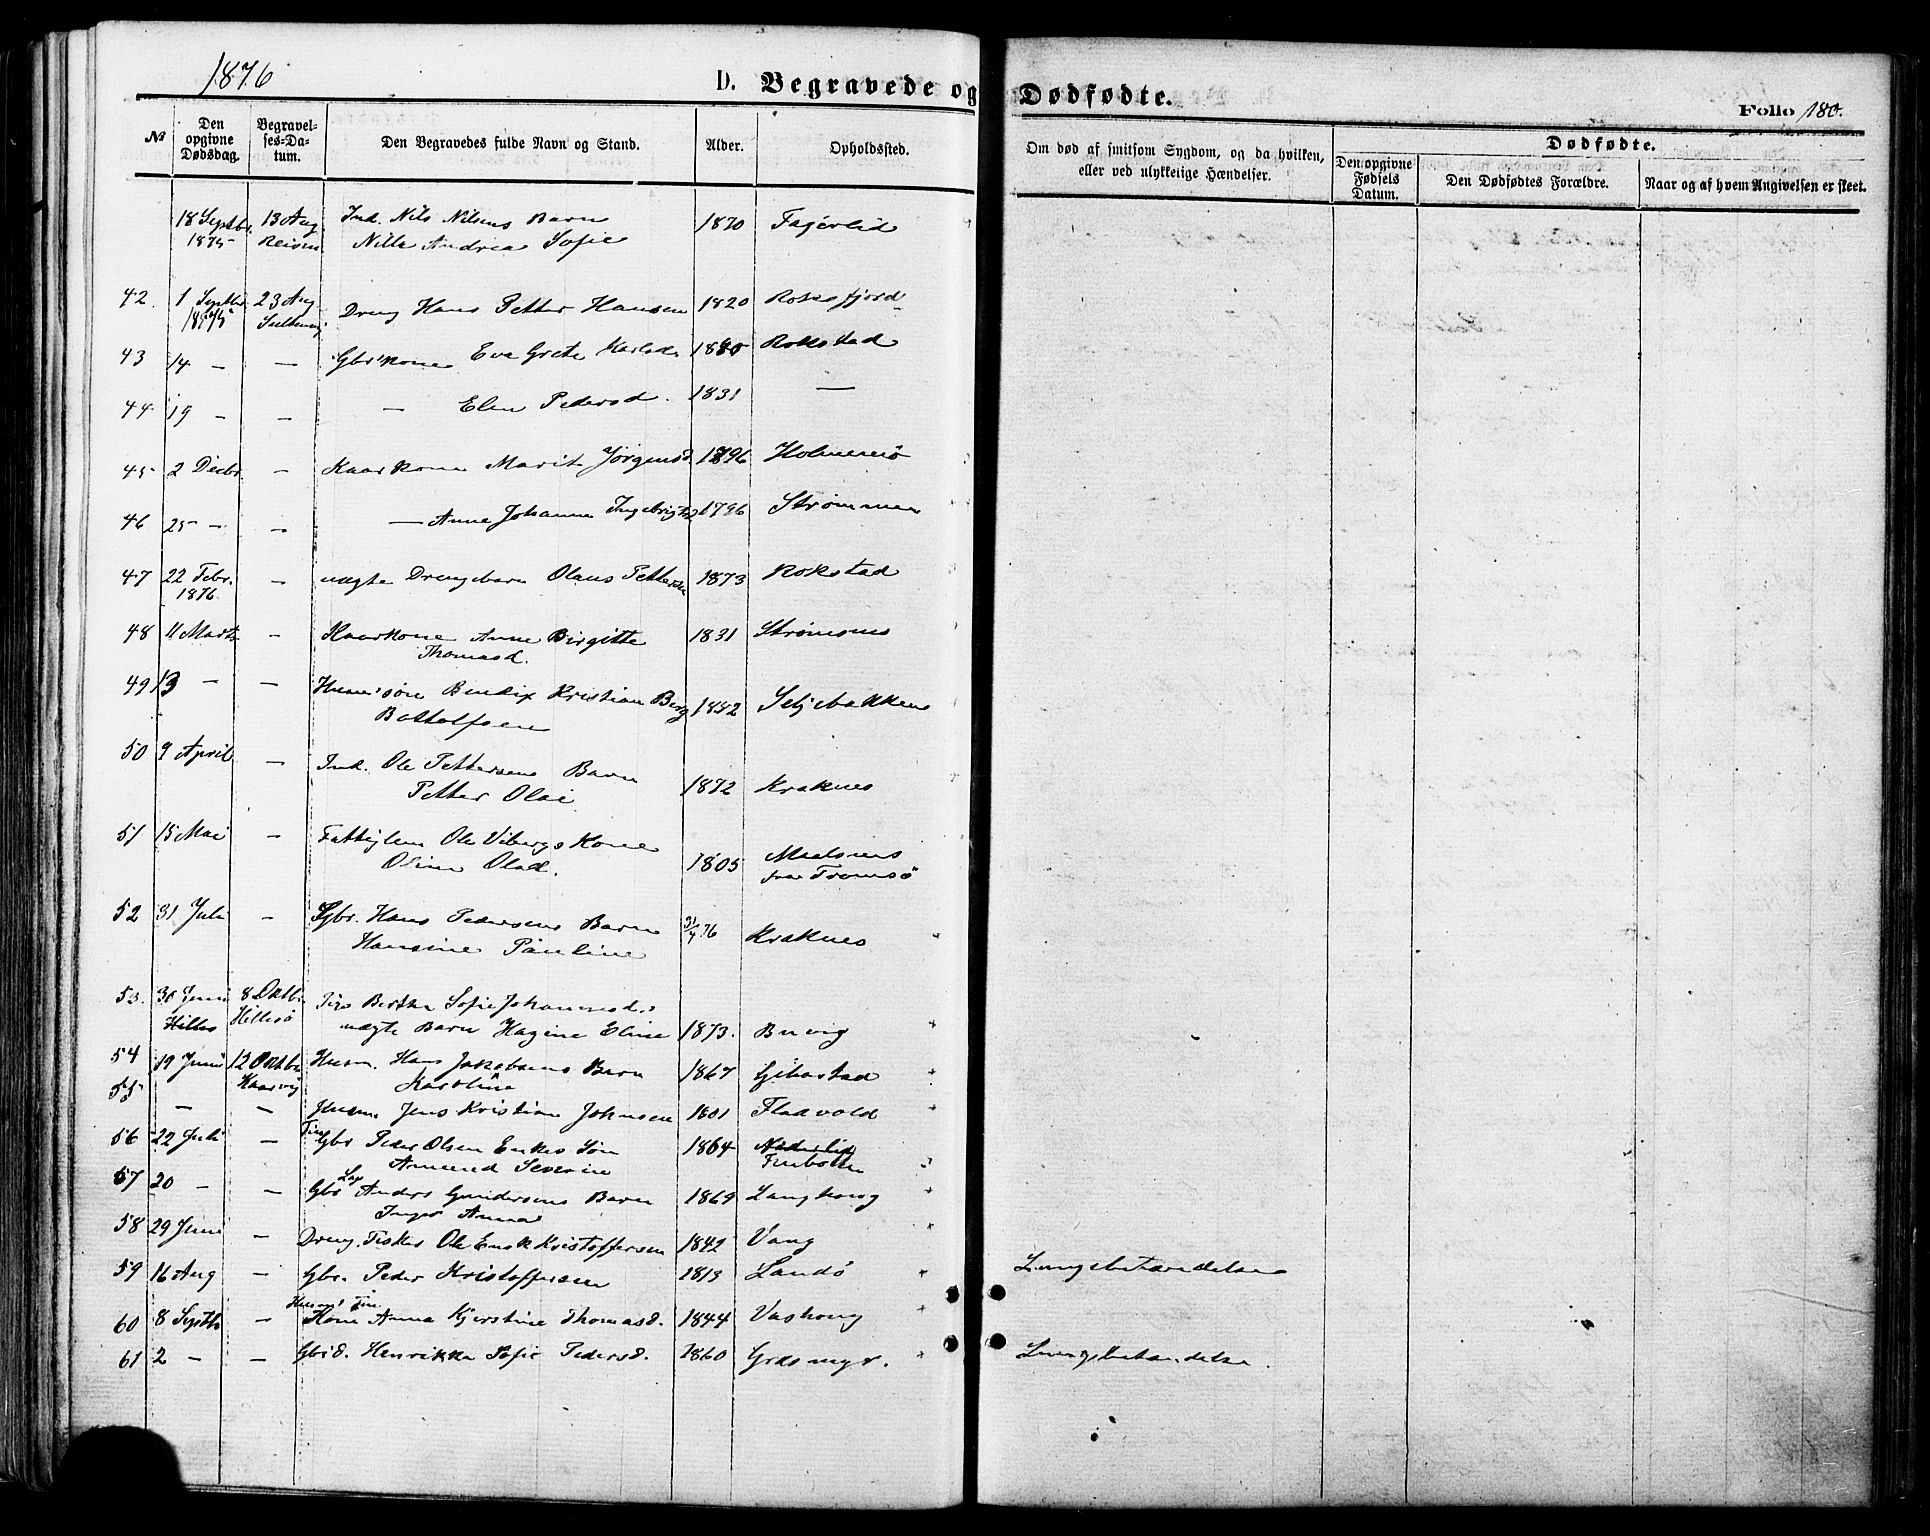 1876
D. Begravede og Dødfødte.
Folio 180.
№
Den opgivne Dødsdag.
Begravelses-Datum.
Den Begravedes fulde Navn og Stand.
Alder.
Opholdssted.
Om død af smitsom Sygdom, og da hvilken, eller ved ulykkelige Hændelser.
Dødfødte.
Den opgivne Fødsels Datum.
Den Dødfødtes Forældre.
Naar og af hvem Angivelsen er skeet.
18 Septbr. 13 Aug. Ind. Nils Nilsens Barn 1870 Fagerlid
1875 Reisen Nilla Andrea Sofie
42. 1 Septbr. 23 Aug. Dreng Hans Petter Hansen 1820 Roksfjord
1875
43 14 — — Gbrkone Eva Grete Karlsd. Rokstad
44 19 — — — Elen Pedersd. 1831 —
45 2 Decbr. — Kaarkone Marit Jørgensd. 1796 Holmenes
46 25 — — — Anne Johanna Ingebrigtsd 1796 Strømmen
47 22 Febr. — uægte Drengebarn Olaus Pettersen 1873 Rokstad
1876.
48 11 Marts — Kaarkone Anne Birgitte 1831 Strømsnes
Thomasd.
49 13 — — Husm.søn Bendix Kristian Berg 1852 Seljebakken
Bottolfsen
50 9 April — Ind. Ole Pettersens Barn 1872 Kraknes
Petter Olai
51 15 Mai — Fattiglem Ole Vibergs Kone 1805
Olsd. fra Tromsö
52 31 Juli — Gbr. Hans Pedersens Barn 31/7 76 Kraknes
Hansine Pauline
53. 30 Juni 8 Oktb. Pige Bertha Sofie Johannesd.s
Hillesö uægte Barn Hagine Elise 1873. Buvig
54 19 Juni 12 Oktbr. Husm. Hans Jakobsens Barn 1867 Gibostad
Karoline
55 — — Husm. Jens Kristian Johnsen 1801 Fladvold
56 22 Juli — Fin Gbr Peder Olsen Enkes Søn 1864 Nederlid
Amund Severin Finbotten
57 20 — — Gbr Lap Anders Gundersens Barn 1869
Inger Anna
58 29 Juni — Dreng. Fisker Ole Enok Kristoffersen 1842 Vang
59 16 Aug — Gbr. Peder Kristoffersen 1813 Landö Lungebetændelse
60 8 Septb — Husm.s Fin Kone Anna Kjerstine Thomasd. 1844
61 2 — — Gbrd. Henrikka Sofie Pedersd. 1860 Græsmyr. Lungebetændelse.